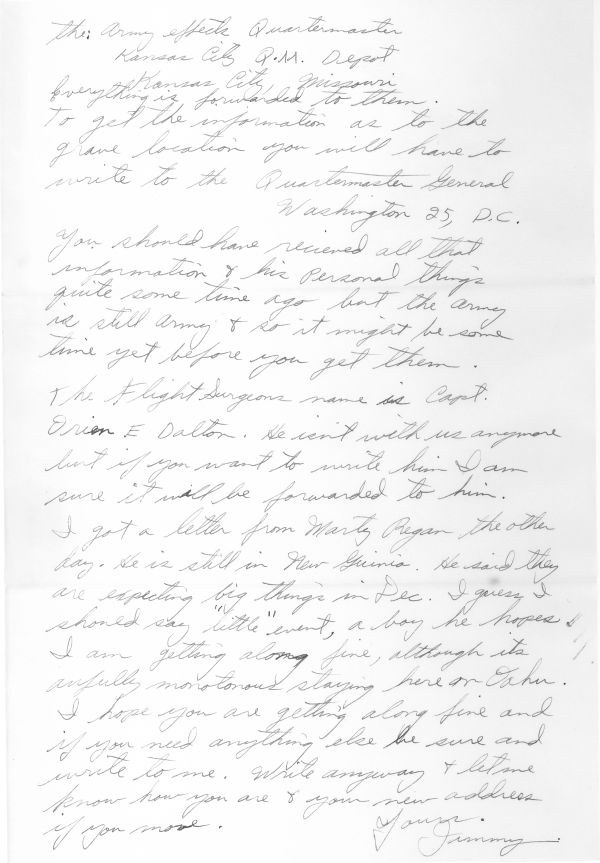 the: Army effects Quartermaster
Kansas City Q.M. Depot
Kansas City, Missouri
Everything is forwarded to them.
To get the information as to the
grave location you will have to
write to the Quartermaster General
Washington 25, D.C.
You should have recieved all that
information & his Personal things
quite some time ago but the army
is still army & so it might be some
time yet before you get them.
The Flight Surgeons name is Capt.
Orien E Dalton. He isn't with us anymore
but if you want to write him I am
sure it will be forwarded to him.
I got a letter from Marty Regan the other
day. He is still in New Guinia. He said they
are expecting big things in Dec. I guess I
should say "little" event, a boy he hopes
I am getting along fine, although its
awfully monotonous staying here on Oahu.
I hope you are getting along fine and
if you need anything else be sure and
write to me. Write anyway & let me
know how you are & your new address
if you move.
Yours.
Jimmy.